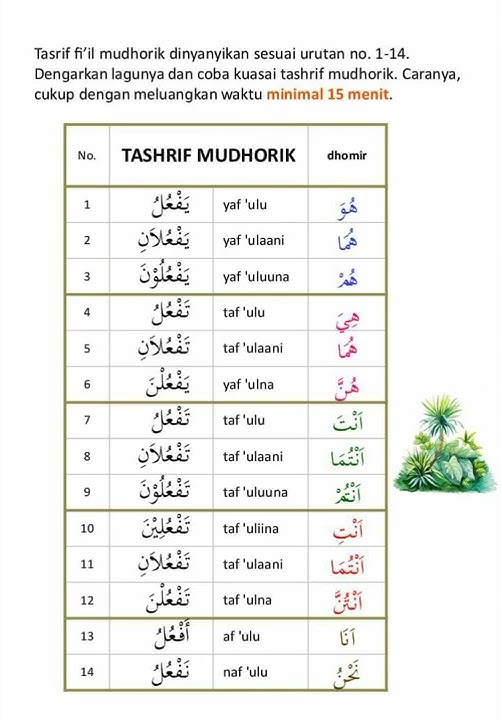 Tasrif fi'il mudhorik dinyanyikan sesuai urutan no. 1-14.
Dengarkan lagunya dan coba kuasai tashrif mudhorik. Caranya,
cukup dengan meluangkan waktu minimal 15 menit.
No. TASHRIF MUDHORIK dhomir
1 يَفْعُلُ yaf 'ulu هُوَ
2 يَفْعُلَانِ yaf 'ulaani هُمَا
3 يَفْعُلُوْنَ yaf 'uluuna هُمْ
4 تَفْعُلُ taf 'ulu هِيَ
5 تَفْعُلَانِ taf 'ulaani هُمَا
6 يَفْعُلْنَ yaf 'ulna هُنَّ
7 تَفْعُلُ taf 'ulu اَنْتَ
8 تَفْعُلَانِ taf 'ulaani اَنْتُمَا
9 تَفْعُلُوْنَ taf 'uluuna اَنْتُمْ
10 تَفْعُلِيْنَ taf 'uliina اَنْتِ
11 تَفْعُلَانِ taf 'ulaani اَنْتُمَا
12 تَفْعُلْنَ taf 'ulna اَنْتُنَّ
13 أَفْعُلُ af 'ulu اَنَا
14 نَفْعُلُ naf 'ulu نَحْنُ